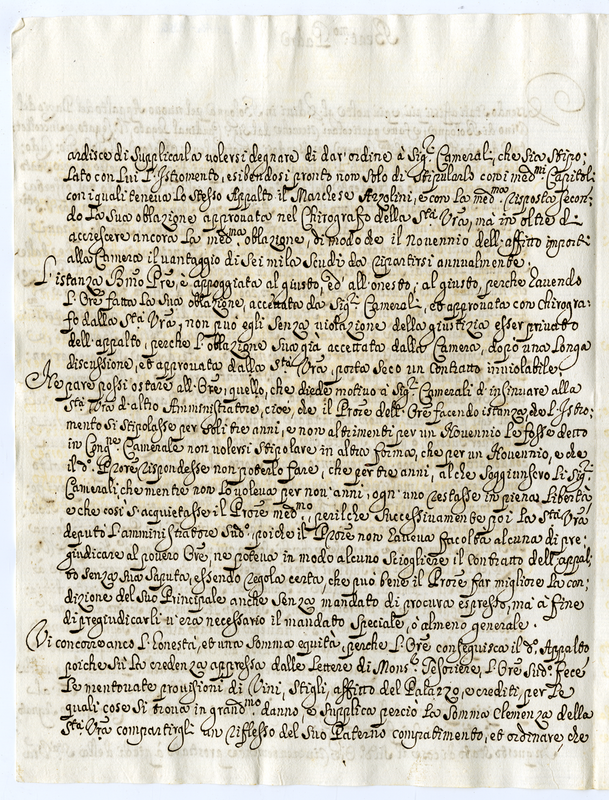 ardisce di Supplicarla volersi degnare di dar' ordine à Sig.ri Camerali, che Sia Stipo:
lato con Lui l'Istromento, esibendosi pronto non Solo di Stipularlo con i med.mi Capitoli
con i quali teneva Lo Stesso Appalto il Marchese Azzolini, e con La med.ma risposta Secon:
do La Sua oblazione approvata nel Chirografo della S.tà V.ra, mà in oltre d'
accrescere ancora La med.ma oblazione, di modo che il Novennio dell'affitto importi
alla Camera il vantaggio di Sei mila Scudi da ripartirsi annualmente.
L'istanza B.mo Pre è appoggiata al giusto, ed all'onesto; al giusto, perche havendo
L'Ore fatta La Sua oblazione, accettata da Sig.ri Camerali, et approvata con chirogra:
fo dalla S.tà V.ra, non può egli Senza violazione della giustizia esser privato
dell'appalto, perche L'oblazione Sua già accettata dalla Camera, dopo una Longa
discussione, et approvata dalla S.tà V.ra, porta Seco un contratto inviolabile.
Ne pare possi ostare all'Ore, quello, che diede motivo a Sig.ri Camerali d'insinuare alla
S.tà V.ra d'altro Amministratore, cioè, che il Prore dell'Ore facendo istanza, che L'Istro:
mento Si Stipolasse per Soli tre anni, e non altrimenti per un Novennio Le fosse detto
in Cong.ne Camerale non volersi Stipolare in altra forma, che per un Novennio, e che
il d.o Prore rispondesse non poterlo fare, che per tre anni, al che Soggiunsero Li Sig.ri
Camerali, che mentre non Lo voleva per nov'anni, ogn'uno restasse in piena Libertà,
e che così S'acquietasse il Prore med.mo, perilche Successivamente poi La S.tà V.ra
deputò L'amministratore Sud.o, poiche il Prore non haveva facoltà alcuna di pre:
giudicare al povero Ore, ne poteva in modo alcuno Sciogliere il contratto dell'appal:
to Senza Sua Saputa, essendo regola certa, che può bene il Prore far migliore La con:
dizione del Suo Principale anche Senza mandato di procura espresso, mà à fine
di pregiudicarli v'era necessario il mandato Speciale, ò almeno generale.
Vi concorre anco L'onestà, et una Somma equità, perche L'Ore conseguisca il d.o Appalto
poiche Sù La credenza appressa dalle Lettere di Mons.r Tesoriere, L'Ore Sud.o fece
Le mentovate provisioni di Vini, Stigli, affitto del Palazzo, e crediti, per Le
quali cose Si trova in grand.mo danno, e Supplica perciò La Somma clemenza della
S.tà V.ra compartirgli un riflesso del Suo Paterno compatimento, et ordinare, che